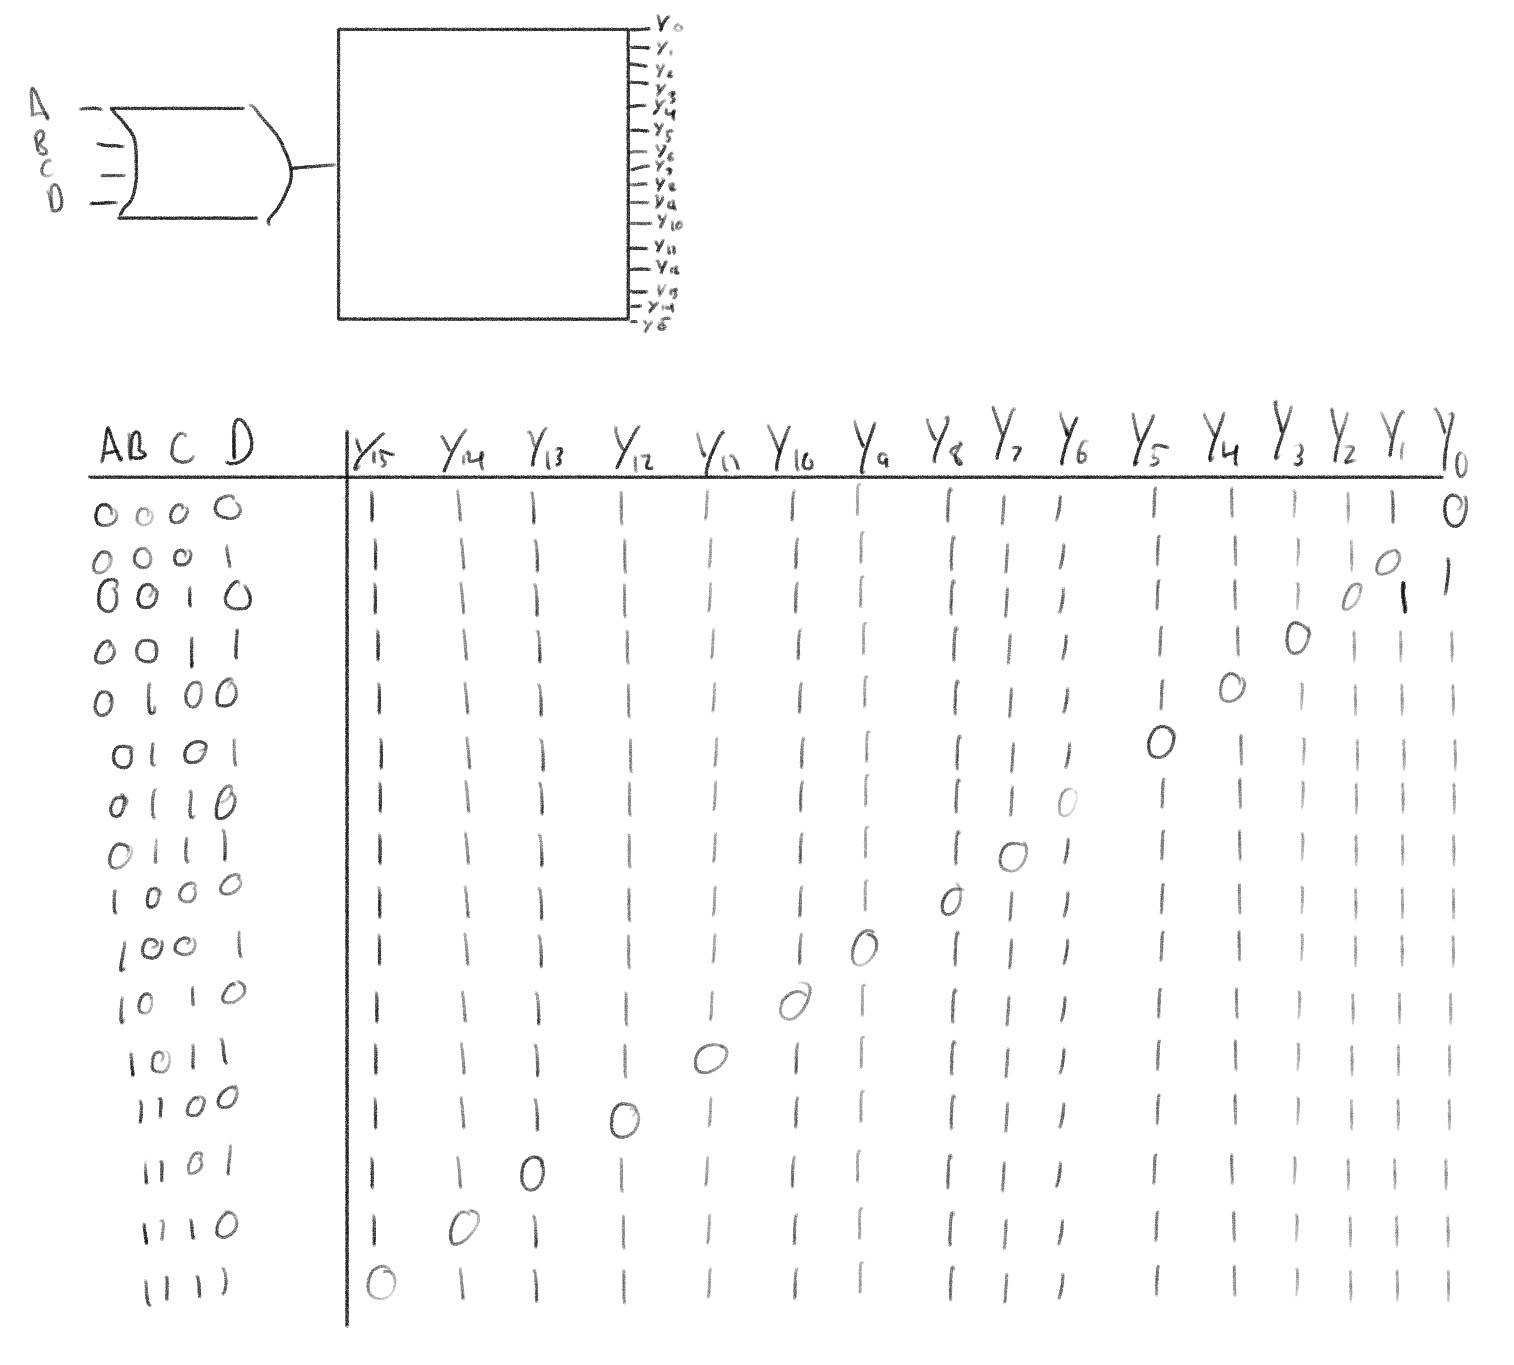 A
B
C
D
Y0
Y1
Y2
Y3
Y4
Y5
Y6
Y7
Y8
Y9
Y10
Y11
Y12
Y13
Y14
Y15
A B C D Y15 Y14 Y13 Y12 Y11 Y10 Y9 Y8 Y7 Y6 Y5 Y4 Y3 Y2 Y1 Y0
0 0 0 0 1 1 1 1 1 1 1 1 1 1 1 1 1 1 1 0
0 0 0 1 1 1 1 1 1 1 1 1 1 1 1 1 1 1 0 1
0 0 1 0 1 1 1 1 1 1 1 1 1 1 1 1 1 0 1
0 0 1 1 1 1 1 1 1 1 1 1 1 1 1 1 0 1 1 1
0 1 0 0 1 1 1 1 1 1 1 1 1 1 1 0 1 1 1 1
0 1 0 1 1 1 1 1 1 1 1 1 1 1 0 1 1 1 1 1
0 1 1 0 1 1 1 1 1 1 1 1 1 0 1 1 1 1 1 1
0 1 1 1 1 1 1 1 1 1 1 1 0 1 1 1 1 1 1 1
1 0 0 0 1 1 1 1 1 1 1 0 1 1 1 1 1 1 1 1
1 0 0 1 1 1 1 1 1 1 0 1 1 1 1 1 1 1 1 1
1 0 1 0 1 1 1 1 1 0 1 1 1 1 1 1 1 1 1 1
1 0 1 1 1 1 1 1 0 1 1 1 1 1 1 1 1 1 1 1
1 1 0 0 1 1 1 0 1 1 1 1 1 1 1 1 1 1 1 1
1 1 0 1 1 1 0 1 1 1 1 1 1 1 1 1 1 1 1 1
1 1 1 0 1 0 1 1 1 1 1 1 1 1 1 1 1 1 1 1
1 1 1 1 0 1 1 1 1 1 1 1 1 1 1 1 1 1 1 1